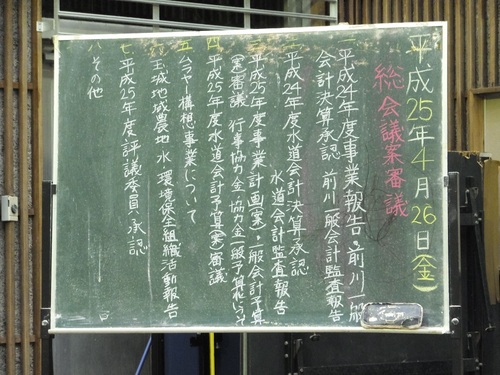 平成25年4月26日(金)
総会議案審議
一 平成24年度事業報告 前川一般
会計決算承認 前川一般会計監査報告
二 平成24年度水道会計決算承認
水道会計監査報告
三 平成25年度事業計画(案)・一般会計予算
(案)審議 行事協力金・協力金一般予算化について
四 平成25年度水道会計予算(案)審議
五 ムラヤー構想事業について
六 玉城地域農地 水 環境保全組織活動報告
七 平成25年度評議委員承認
八 その他